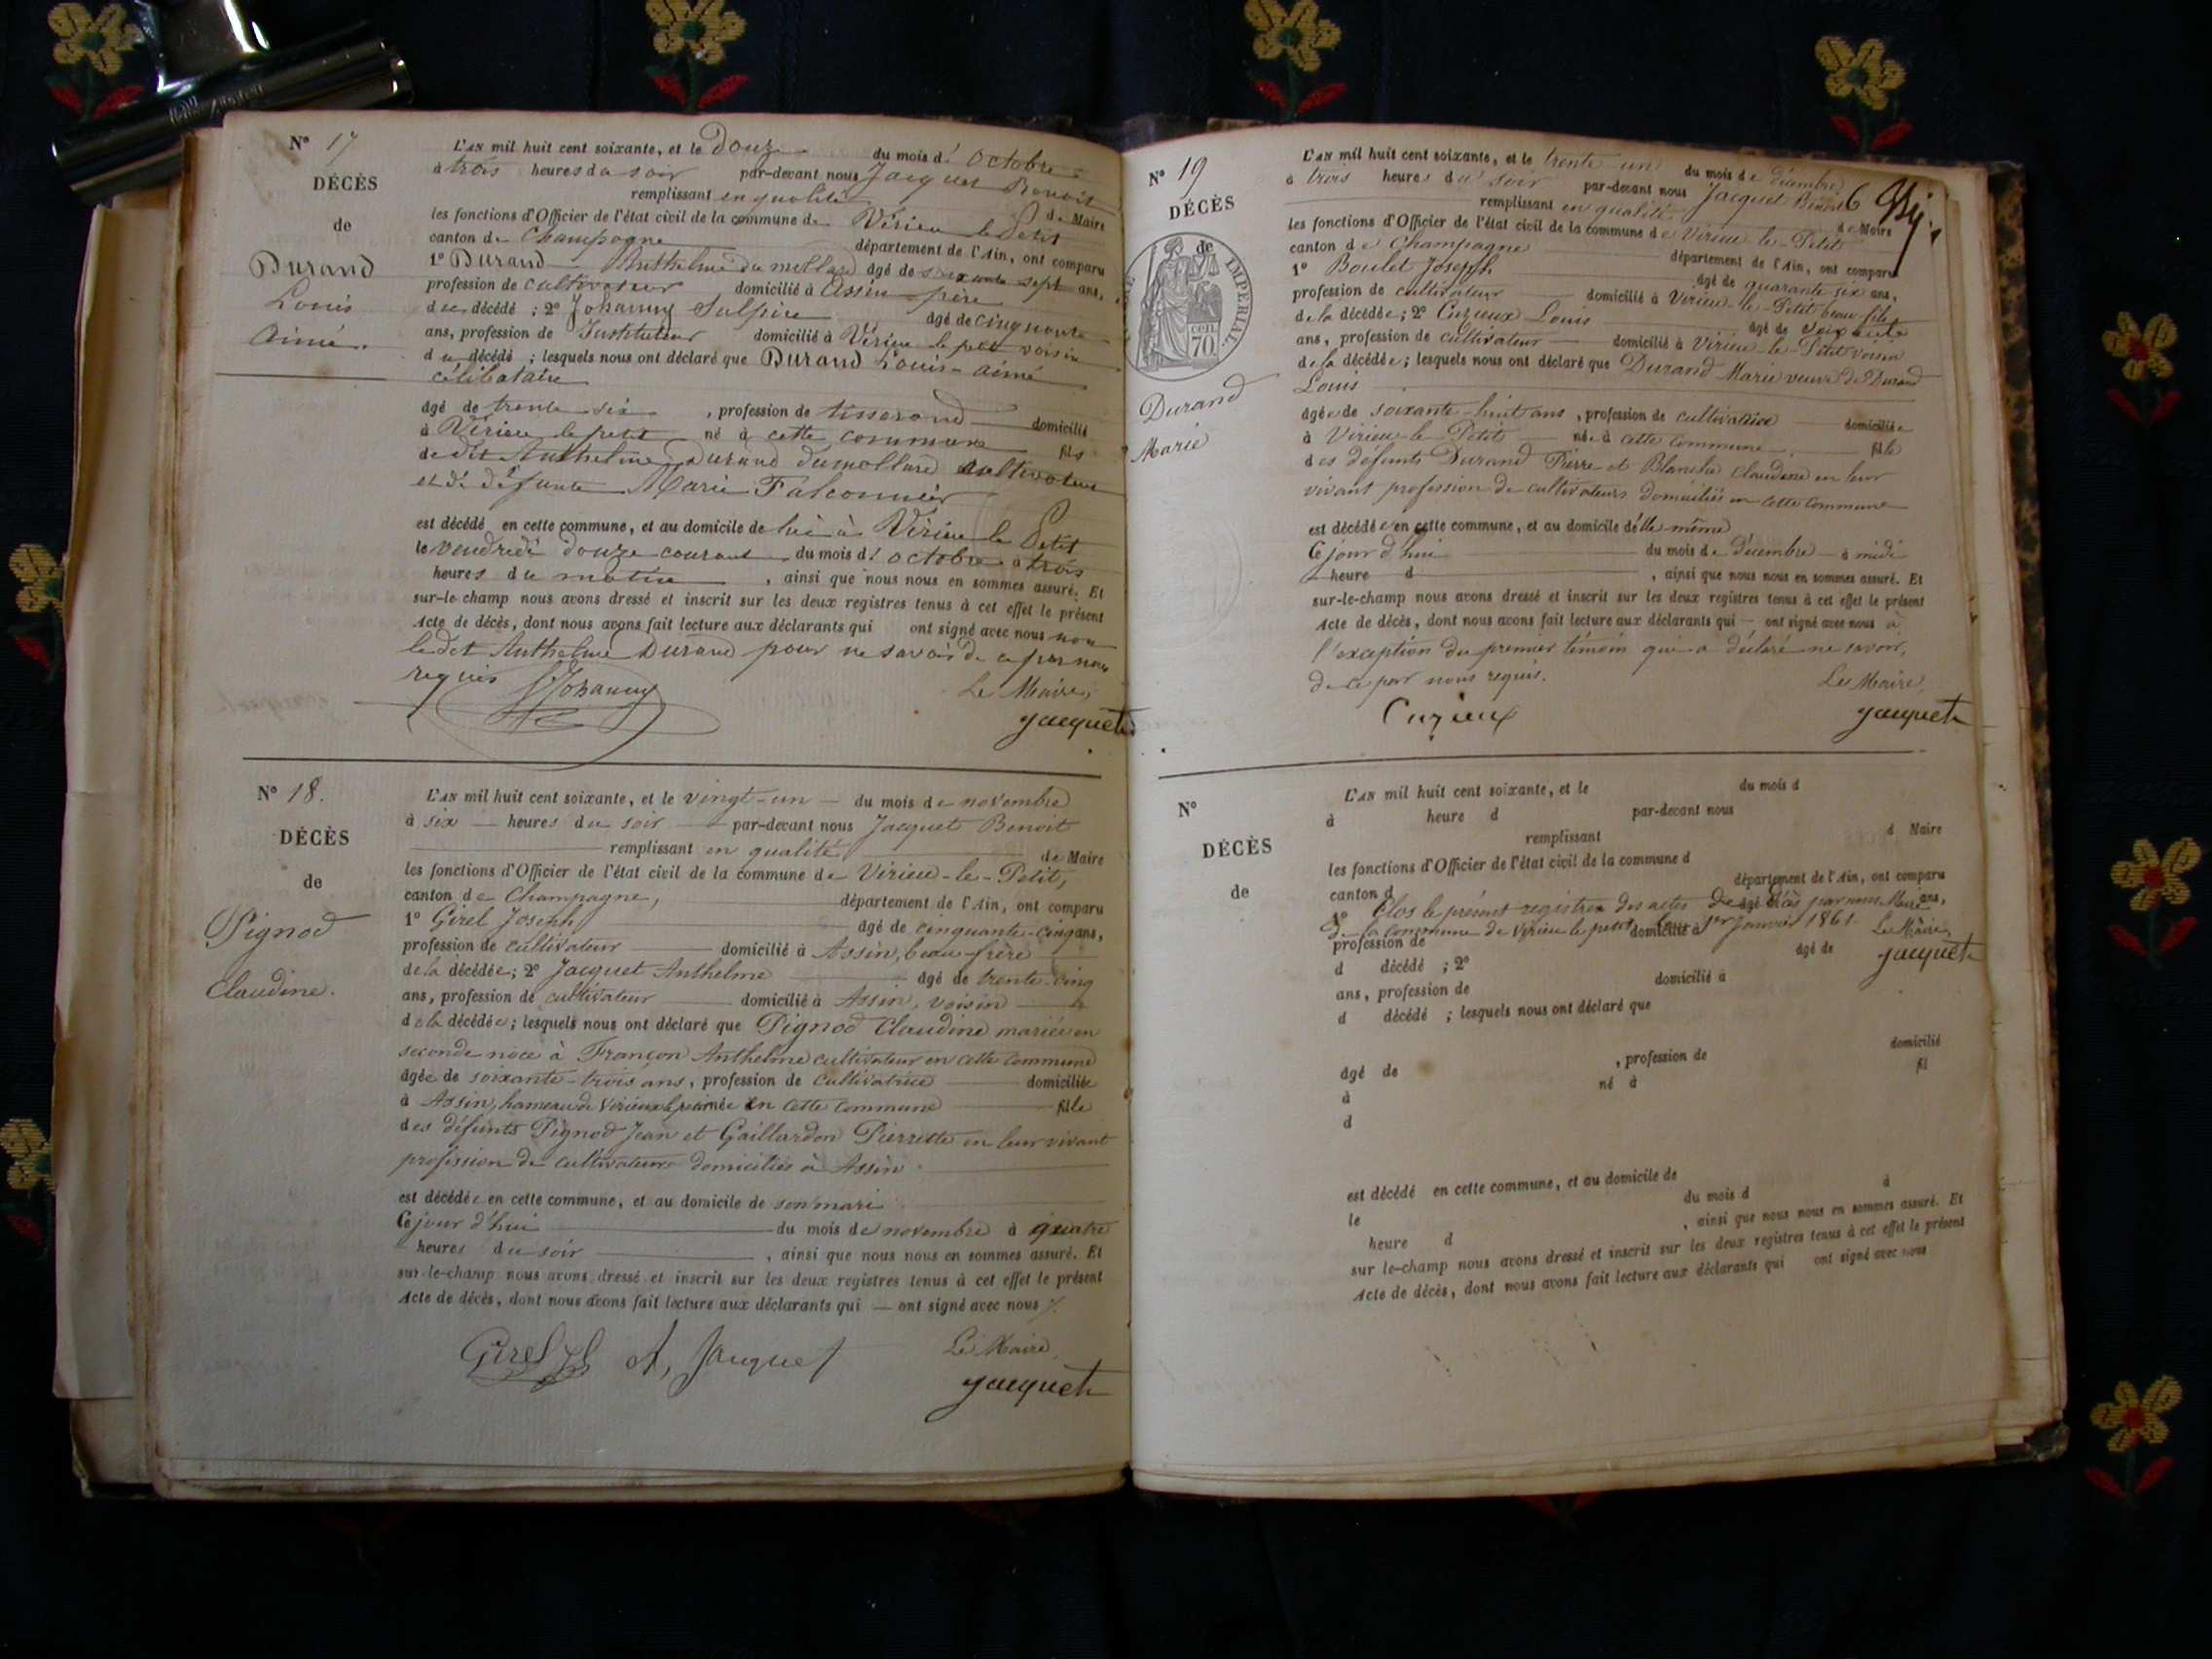 N° 17
DÉCÈS
de
Durand
Louis
Aimé.
L'AN mil huit cent soixante, et le Douze du mois d' Octobre
à trois heures du soir par-devant nous Jacquet Benoit
remplissant en qualité de Maire
les fonctions d'Officier de l'état civil de la commune de Virieu le Petit
canton de Champagne département de l'Ain, ont comparu
1° Durand Anthelme du mollard âgé de soixante sept ans,
profession de cultivateur domicilié à Assin père
du décédé ; 2° Johanny Sulpice âgé de cinquante
ans, profession de Instituteur domicilié à Virieu le petit voisin
du décédé ; lesquels nous ont déclaré que Durand Louis-Aimé
célibataire
âgé de trente six , profession de tisserand domicilié
à Virieu le petit né à cette commune fils
de dit Anthelme Durand dumollard cultivateur
et de défunte Marie Falconnier
est décédé en cette commune, et au domicile de lui à Virieu le Petit
le vendredi douze courant du mois d' octobre à trois
heures du matin , ainsi que nous nous en sommes assuré. Et
sur-le-champ nous avons dressé et inscrit sur les deux registres tenus à cet effet le présent
Acte de décès, dont nous avons fait lecture aux déclarants qui ont signé avec nous non
le dit Anthelme Durand pour ne savoir de ce par nous
requis Johanny Le Maire,
Jacquet
N° 18.
DÉCÈS
de
Pignod
Claudine.
L'AN mil huit cent soixante, et le vingt-un du mois de novembre
à six heures du soir par-devant nous Jacquet Benoit
remplissant en qualité de Maire
les fonctions d'Officier de l'état civil de la commune de Virieu-le-Petit,
canton de Champagne, département de l'Ain, ont comparu
1° Girel Joseph âgé de cinquante-cinq ans,
profession de cultivateur domicilié à Assin, beau-frère
de la décédée ; 2° Jacquet Anthelme âgé de trente-cinq
ans, profession de cultivateur domicilié à Assin, voisin
de la décédée ; lesquels nous ont déclaré que Pignod Claudine mariée en
seconde noce à Françon Anthelme cultivateur en cette commune
âgée de soixante-trois ans, profession de cultivatrice domiciliée
à Assin, hameau de Virieu le petit née en cette commune fille
des défunts Pignod Jean et Gaillardon Pierrette en leur vivant
profession de cultivateurs domiciliés à Assin
est décédée en cette commune, et au domicile de son mari
Ce jour d'hui du mois de novembre à quatre
heures du soir , ainsi que nous nous en sommes assuré. Et
sur-le-champ nous avons dressé et inscrit sur les deux registres tenus à cet effet le présent
Acte de décès, dont nous avons fait lecture aux déclarants qui ont signé avec nous
Girel A, Jacquet Le Maire,
Jacquet
N° 19
DÉCÈS
de
IMPERIAL
70
Durand
Marie
L'AN mil huit cent soixante, et le trente un du mois de décembre
à trois heures du soir par-devant nous Jacquet Benoit 6
remplissant en qualité de Maire
les fonctions d'Officier de l'état civil de la commune de Virieu-le-Petit
canton de Champagne département de l'Ain, ont comparu
1° Boulet Joseph âgé de quarante six ans,
profession de cultivateur domicilié à Virieu-le-Petit beau-fils
de la décédée ; 2° Cuzieux Louis âgé de soixante
ans, profession de cultivateur domicilié à Virieu-le-Petit voisin
de la décédée ; lesquels nous ont déclaré que Durand Marie veuve de Durand
Louis
âgée de soixante-huit ans, profession de cultivatrice domiciliée
à Virieu-le-Petit née à cette commune fille
des défunts Durand Pierre et Blanche Claudine en leur
vivant profession de cultivateurs domiciliés en cette commune
est décédée en cette commune, et au domicile d'elle même
Ce jour d'hui du mois de décembre à midi
heure d , ainsi que nous nous en sommes assuré. Et
sur-le-champ nous avons dressé et inscrit sur les deux registres tenus à cet effet le présent
Acte de décès, dont nous avons fait lecture aux déclarants qui ont signé avec nous à
l'exception du premier témoin qui a déclaré ne savoir,
de ce par nous requis. Le Maire,
Cuzieux Jacquet
N°
DÉCÈS
de
L'AN mil huit cent soixante, et le du mois d
à heure d par-devant nous
remplissant d Maire
les fonctions d'Officier de l'état civil de la commune d
canton d département de l'Ain, ont comparu
1° âgé de ans,
Clos le présent registre des actes de décès par nous Maire
de la commune de Virieu le petit 1er Janvier 1861. Le Maire,
Jacquet
profession de domicilié à
d décédé ; 2° âgé de
ans, profession de domicilié à
d décédé ; lesquels nous ont déclaré que
âgé de , profession de domicilié
à né à fil
d
est décédé en cette commune, et au domicile de
le du mois d à
heure d , ainsi que nous nous en sommes assuré. Et
sur le-champ nous avons dressé et inscrit sur les deux registres tenus à cet effet le présent
Acte de décès, dont nous avons fait lecture aux déclarants qui ont signé avec nous